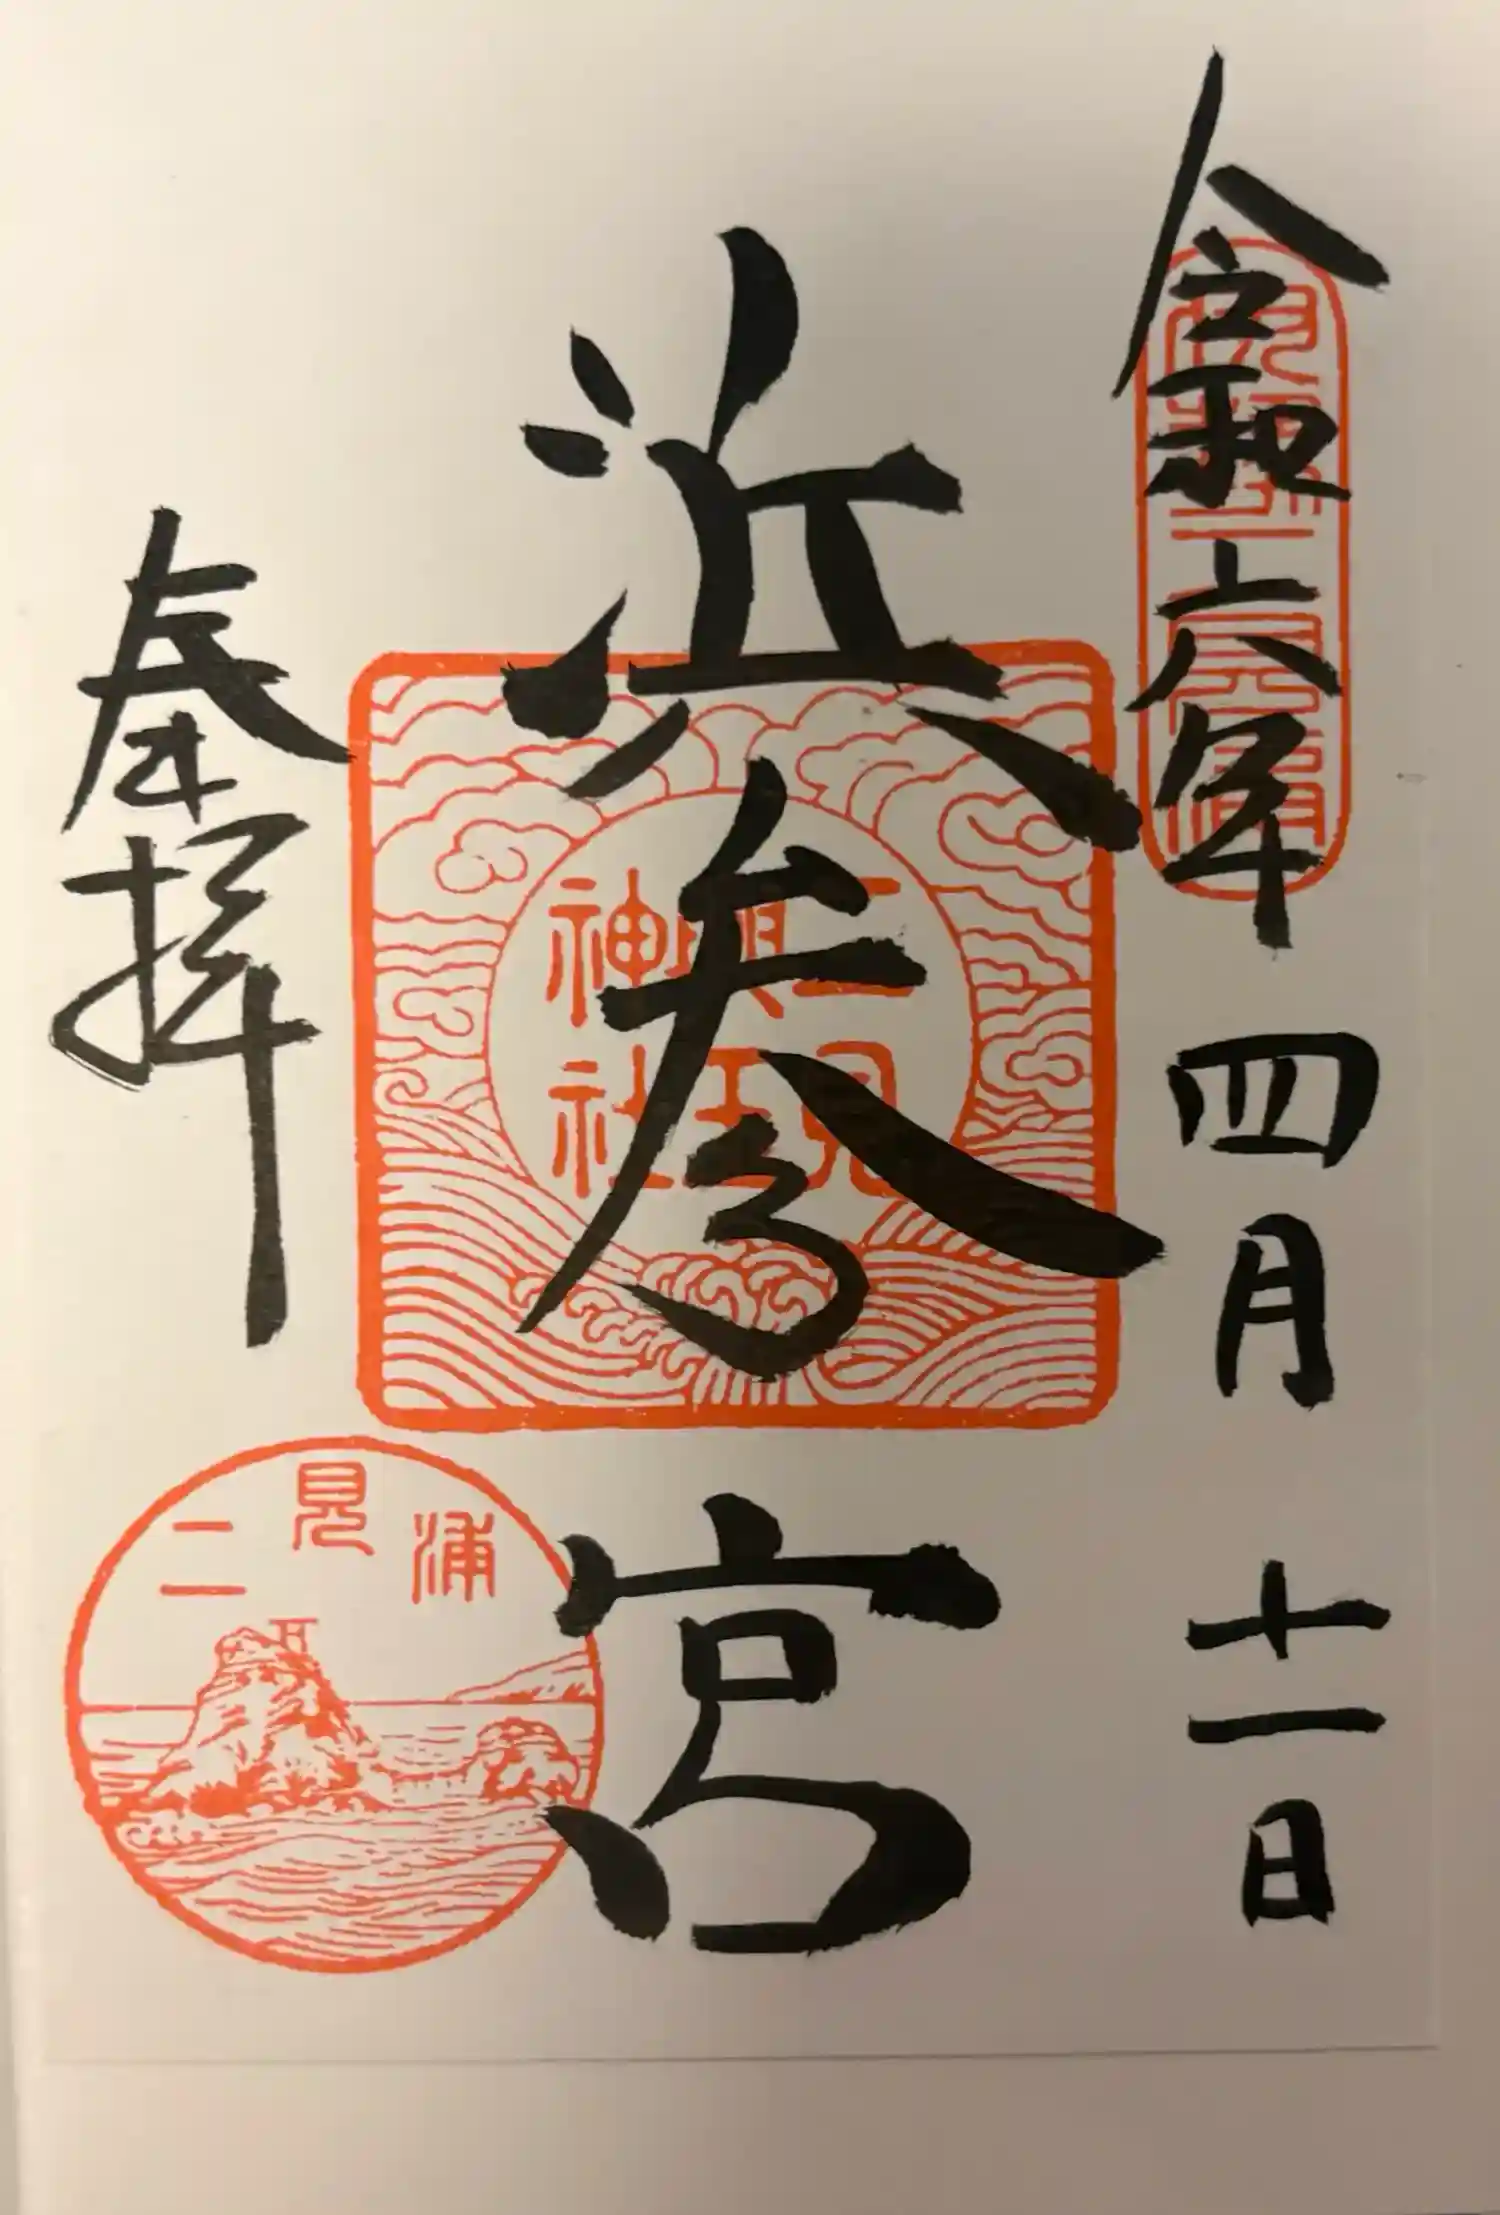 令和六年 四月 十一日
浜参宮
奉拝
二見
興玉
神社
二見浦